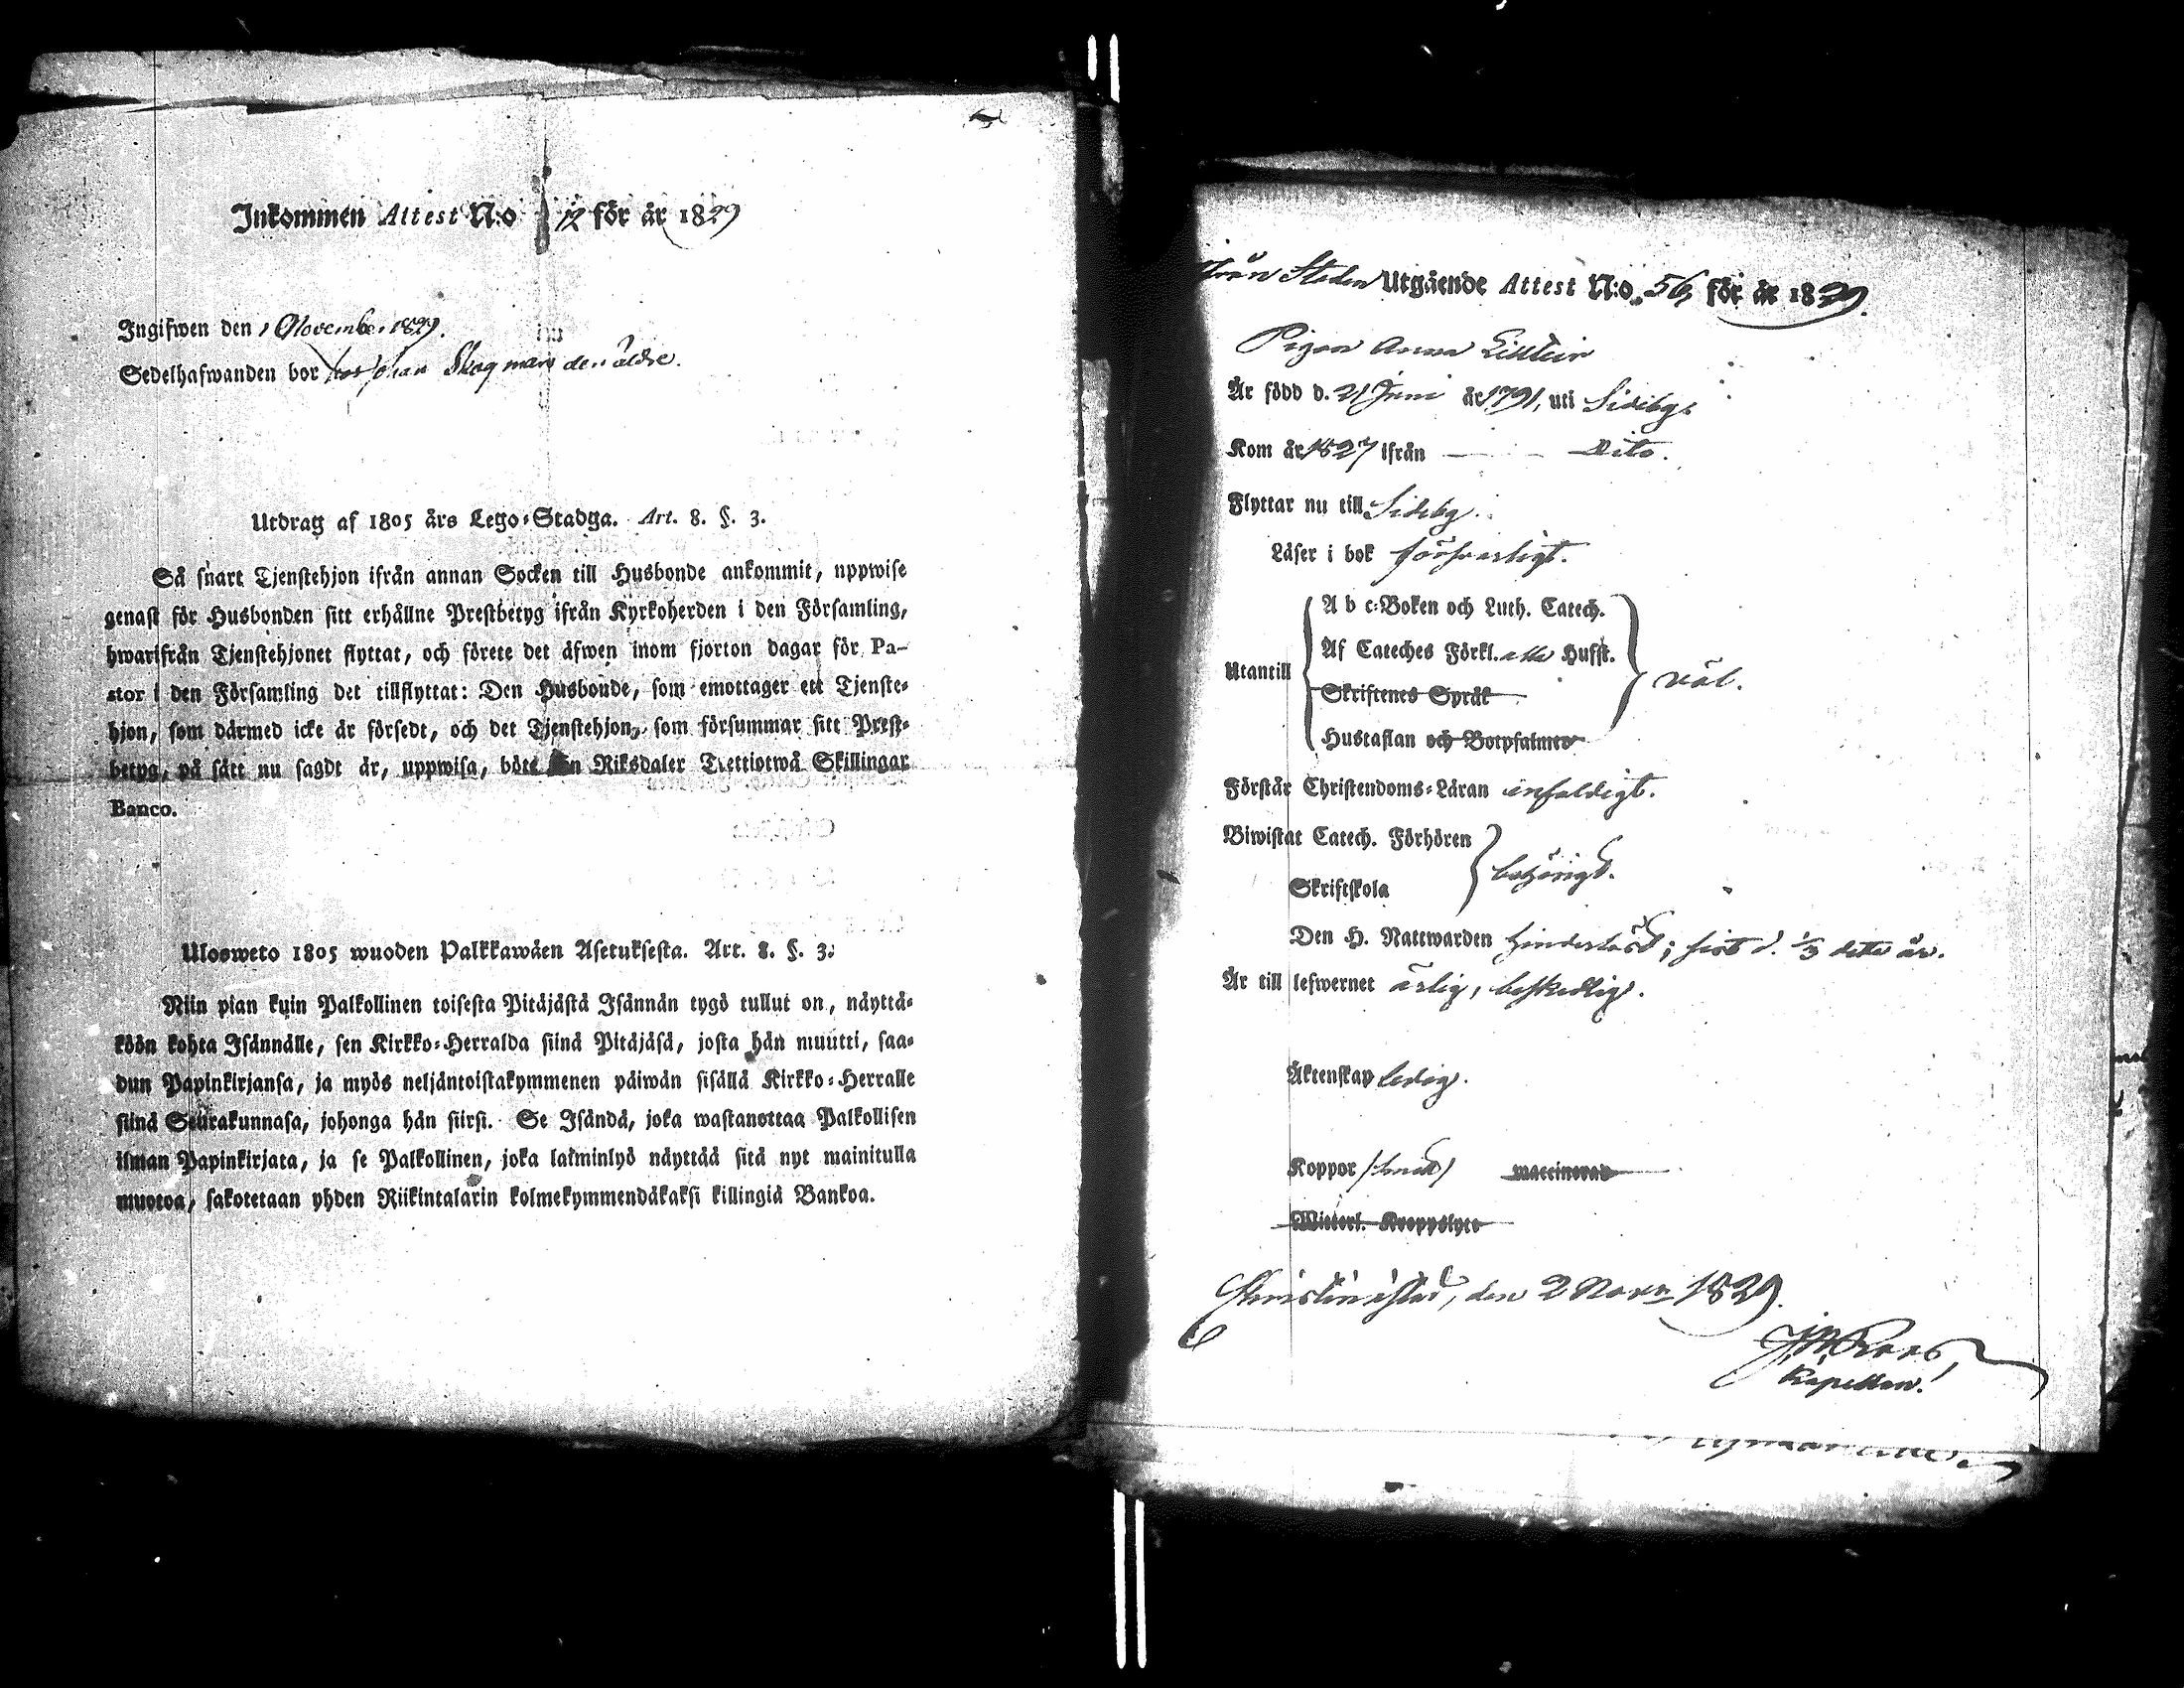 Inkommen Attest N:o 12 för år 1829
Ingifwen den 1 November 1829.
Sedelhafwanden bor hos Johan Skogman den äldre.
Utdrag af 1805 års Lego-Stadga. Art. 8. §. 3.
Så snart Tjenstehjon ifrån annan Socken till Husbonde ankommit, uppwise
genast för Husbonden sitt erhållne Prestbetyg ifrån Kyrkoherden i den Församling,
hwarifrån Tjenstehjonet flyttat, och förete det äfwen inom fjorton dagar för Pa-
stor i den Församling det tillflyttat: Den Husbonde, som emottager ett Tjenste-
hjon, som därmed icke är försedt, och det Tjenstehjon, som försummar sitt Prest-
betyg, på sätt nu sagdt är, uppwisa, böte En Riksdaler Trettiotwå Skillingar
Banco.
Ulosweto 1805 wuoden Palkkawäen Asetuksesta. Art. 8. §. 3:
Niin pian kuin Palkollinen toisesta Pitäjästä Isännän tygö tullut on, näyttä-
köön kohta Isännälle, sen Kirkko-Herralda siinä Pitäjäsä, josta hän muutti, saa-
dun Papinkirjansa, ja myös neljäntoistakymmenen päiwän sisällä Kirkko-Herralle
siinä Seurakunnasa, johonga hän siirsi. Se Isändä, joka wastanottaa Palkollisen
ilman Papinkirjata, ja se Palkollinen, joka laiminlyö näyttää sitä nyt mainitulla
muotoa, sakotetaan yhden Riikintalarin kolmekymmendäkaksi killingiä Bankoa.
från Staden Utgående Attest N:o 56, för år 1829.
Pigan Anna
Är född d. 21 Juni år 1791, uti Sideby.
Kom år 1827 ifrån — - Dito.
Flyttar nu till Sideby.
Läser i bok försvarligt.
A b c-Boken och Luth. Catech.
Af Cateches Förkl. alla Hufst.
Utantill väl.
Skriftenes Språk
Hustaflan och Botpsalmer
Förstår Christendoms-Läran enfaldigt.
Biwistat Catech. Förhören
behörigt.
Skriftskola
Den H. Nattwarden sist d. 1/3 detta år.
Är till lefwernet ärlig, beskedlig.
Äktenskap ledig.
Koppor haft waccinerad
Witterl. Kroppslyte
Christinestad, den 2 Novr 1829.
Kapellan.